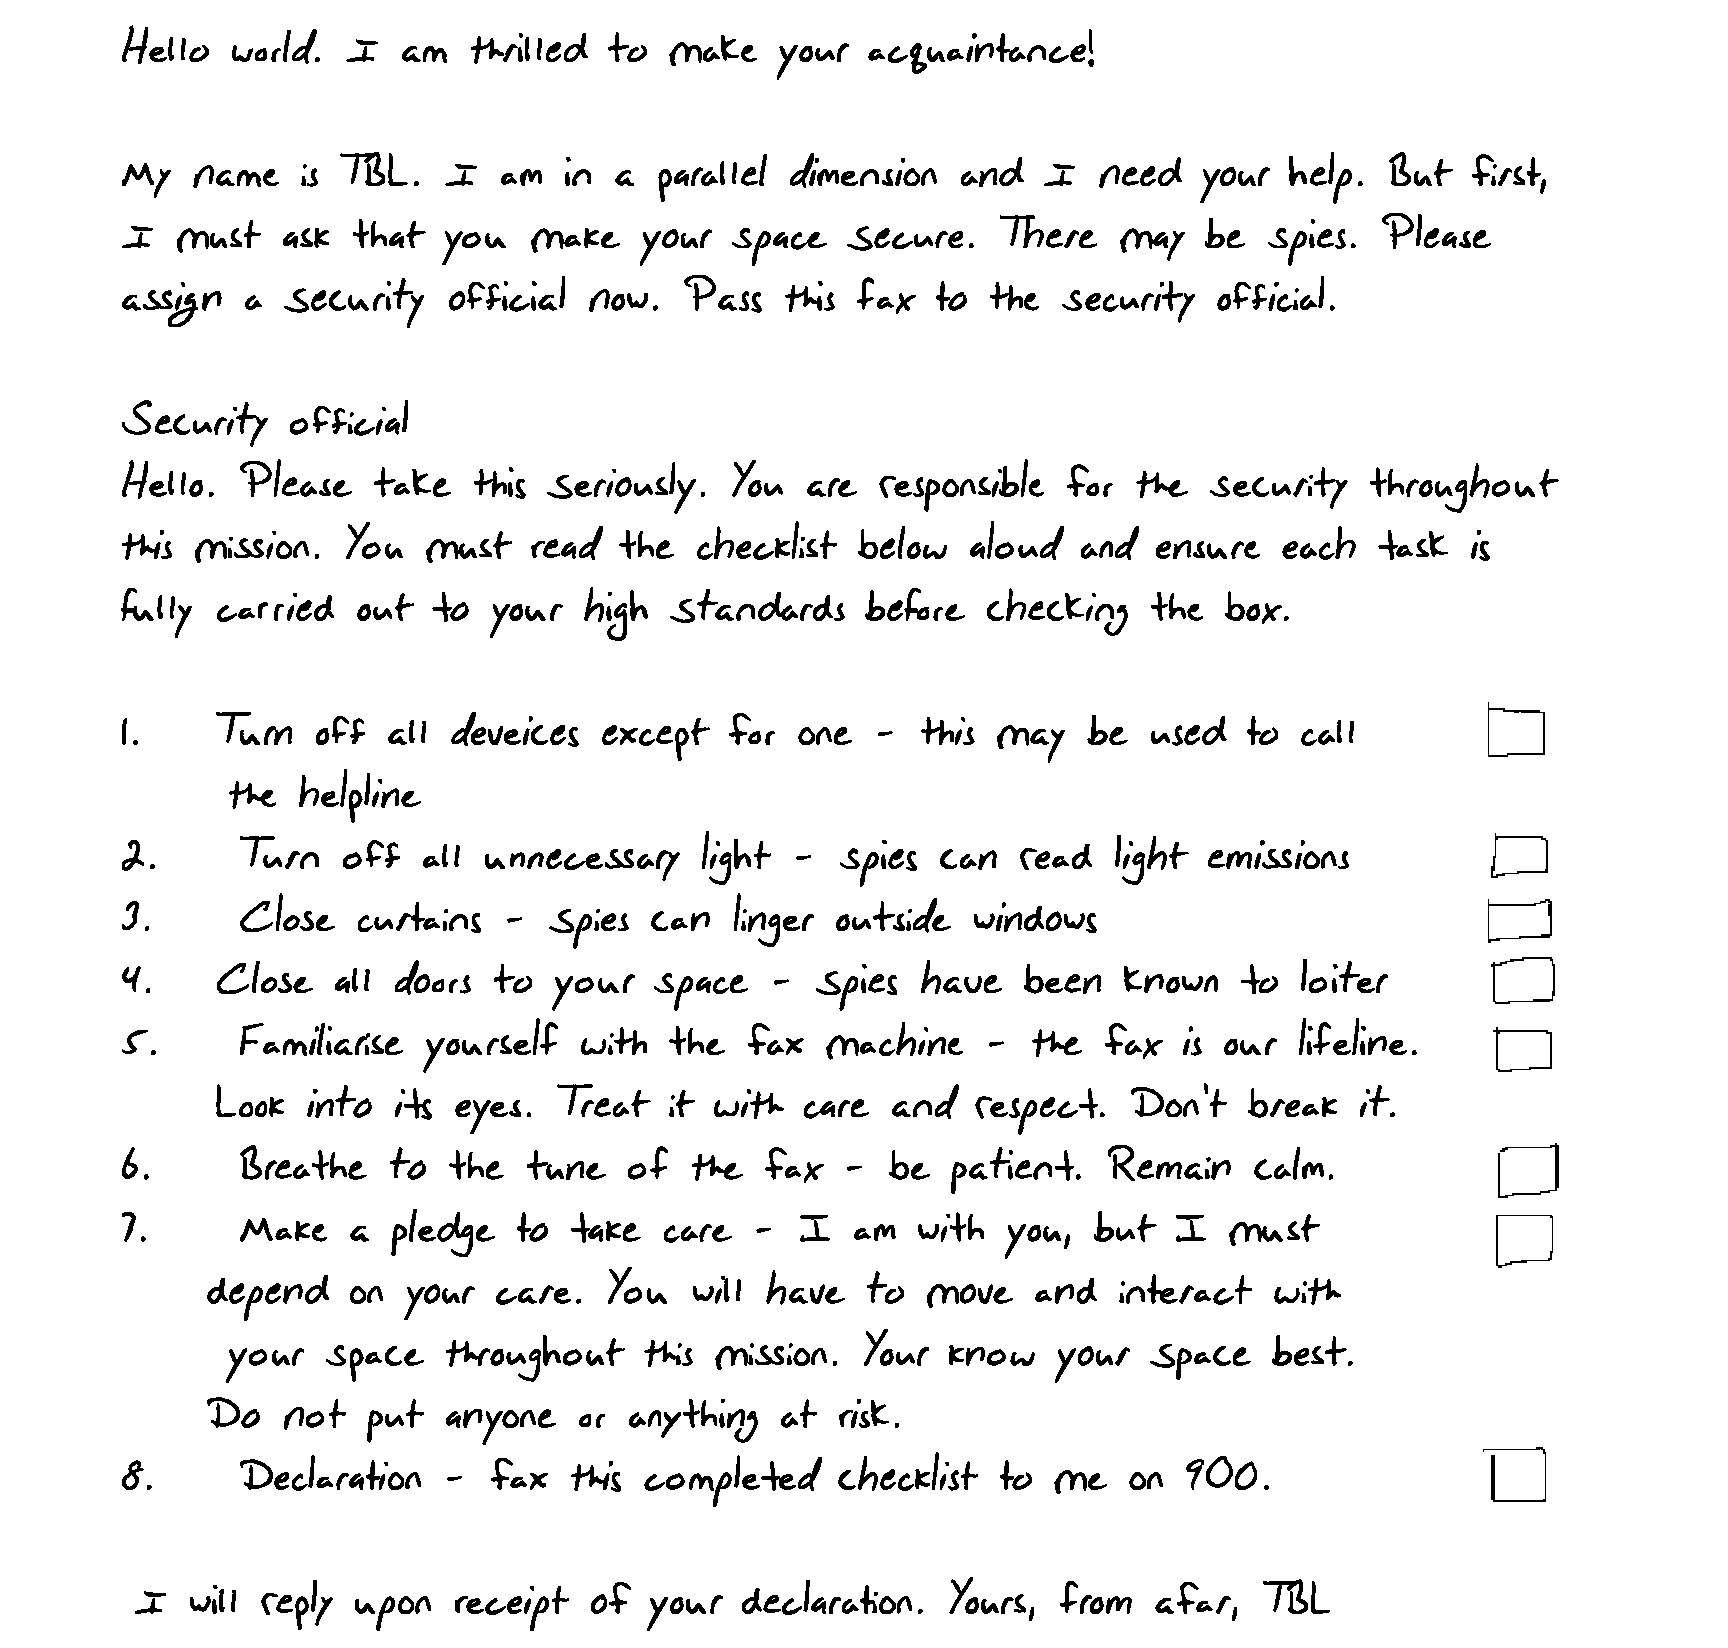 Hello world. I am thrilled to make your acquaintance!
My name is TBL. I am in a parallel dimension and I need your help. But first,
I must ask that you make your space secure. There may be spies. Please
assign a security official now. Pass this fax to the security official.
Security official
Hello. Please take this seriously. You are responsible for the security throughout
this mission. You must read the checklist below aloud and ensure each task is
fully carried out to your high standards before checking the box.
1. Turn off all deveices except for one - this may be used to call
the helpline
2. Turn off all unnecessary light - spies can read light emissions
3. Close curtains - spies can linger outside windows
4. Close all doors to your space - spies have been known to loiter
5. Familiarise yourself with the fax machine - the fax is our lifeline.
Look into its eyes. Treat it with care and respect. Don't break it.
6. Breathe to the tune of the fax - be patient. Remain calm.
7. Make a pledge to take care - I am with you, but I must
depend on your care. You will have to move and interact with
your space throughout this mission. Your know your space best.
Do not put anyone or anything at risk.
8. Declaration - fax this completed checklist to me on 900.
I will reply upon receipt of your declaration. Yours, from afar, TBL